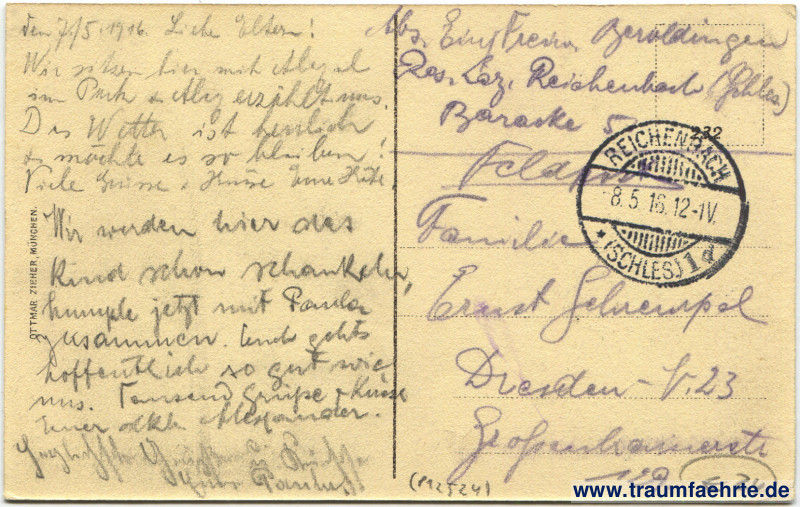 den 7./5. 1916. Liebe Eltern!
Wir sitzen hier mit
im Park &
Das Wetter ist herrlich
& möchte es so bleiben!
Viele Grüsse & Küsse Eure
Wir werden hier das
Kind schon schaukeln,
humple jetzt mit Paula
zusammen. Euch gehts
hoffentlich so gut wie
uns. Tausend Grüße & Küsse
Euer Alexander.
Herzlichste Grüsse & Küsse
Eure
OTTMAR ZIEHER, MÜNCHEN.
Abs. Beroldingen
Res. Laz. Reichenbach (Schles)
Baracke 5
232
Feldpost
REICHENBACH
8.5.16.12-1V.
* (SCHLES.) 1d
Familie
Ernst
Dresden-N.23
Großenhainerstr
(M2524)
www.traumfaehrte.de